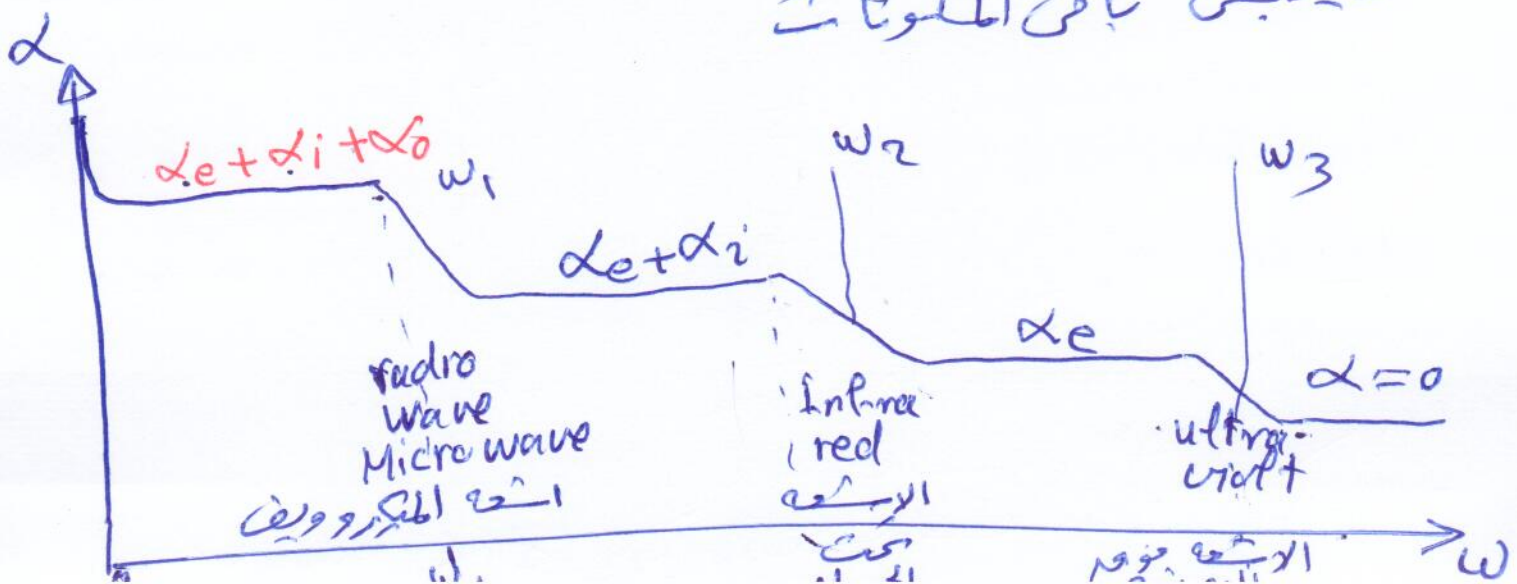 باقى المكونات
α
αe + αi + αo
w1
αe + αi
w2
αe
w3
α = 0
radio
wave
Microwave
اشعه الميكروويف
Infra
red
الاشعه
تحت
ultra-
violt
الاشعه فوق
ω